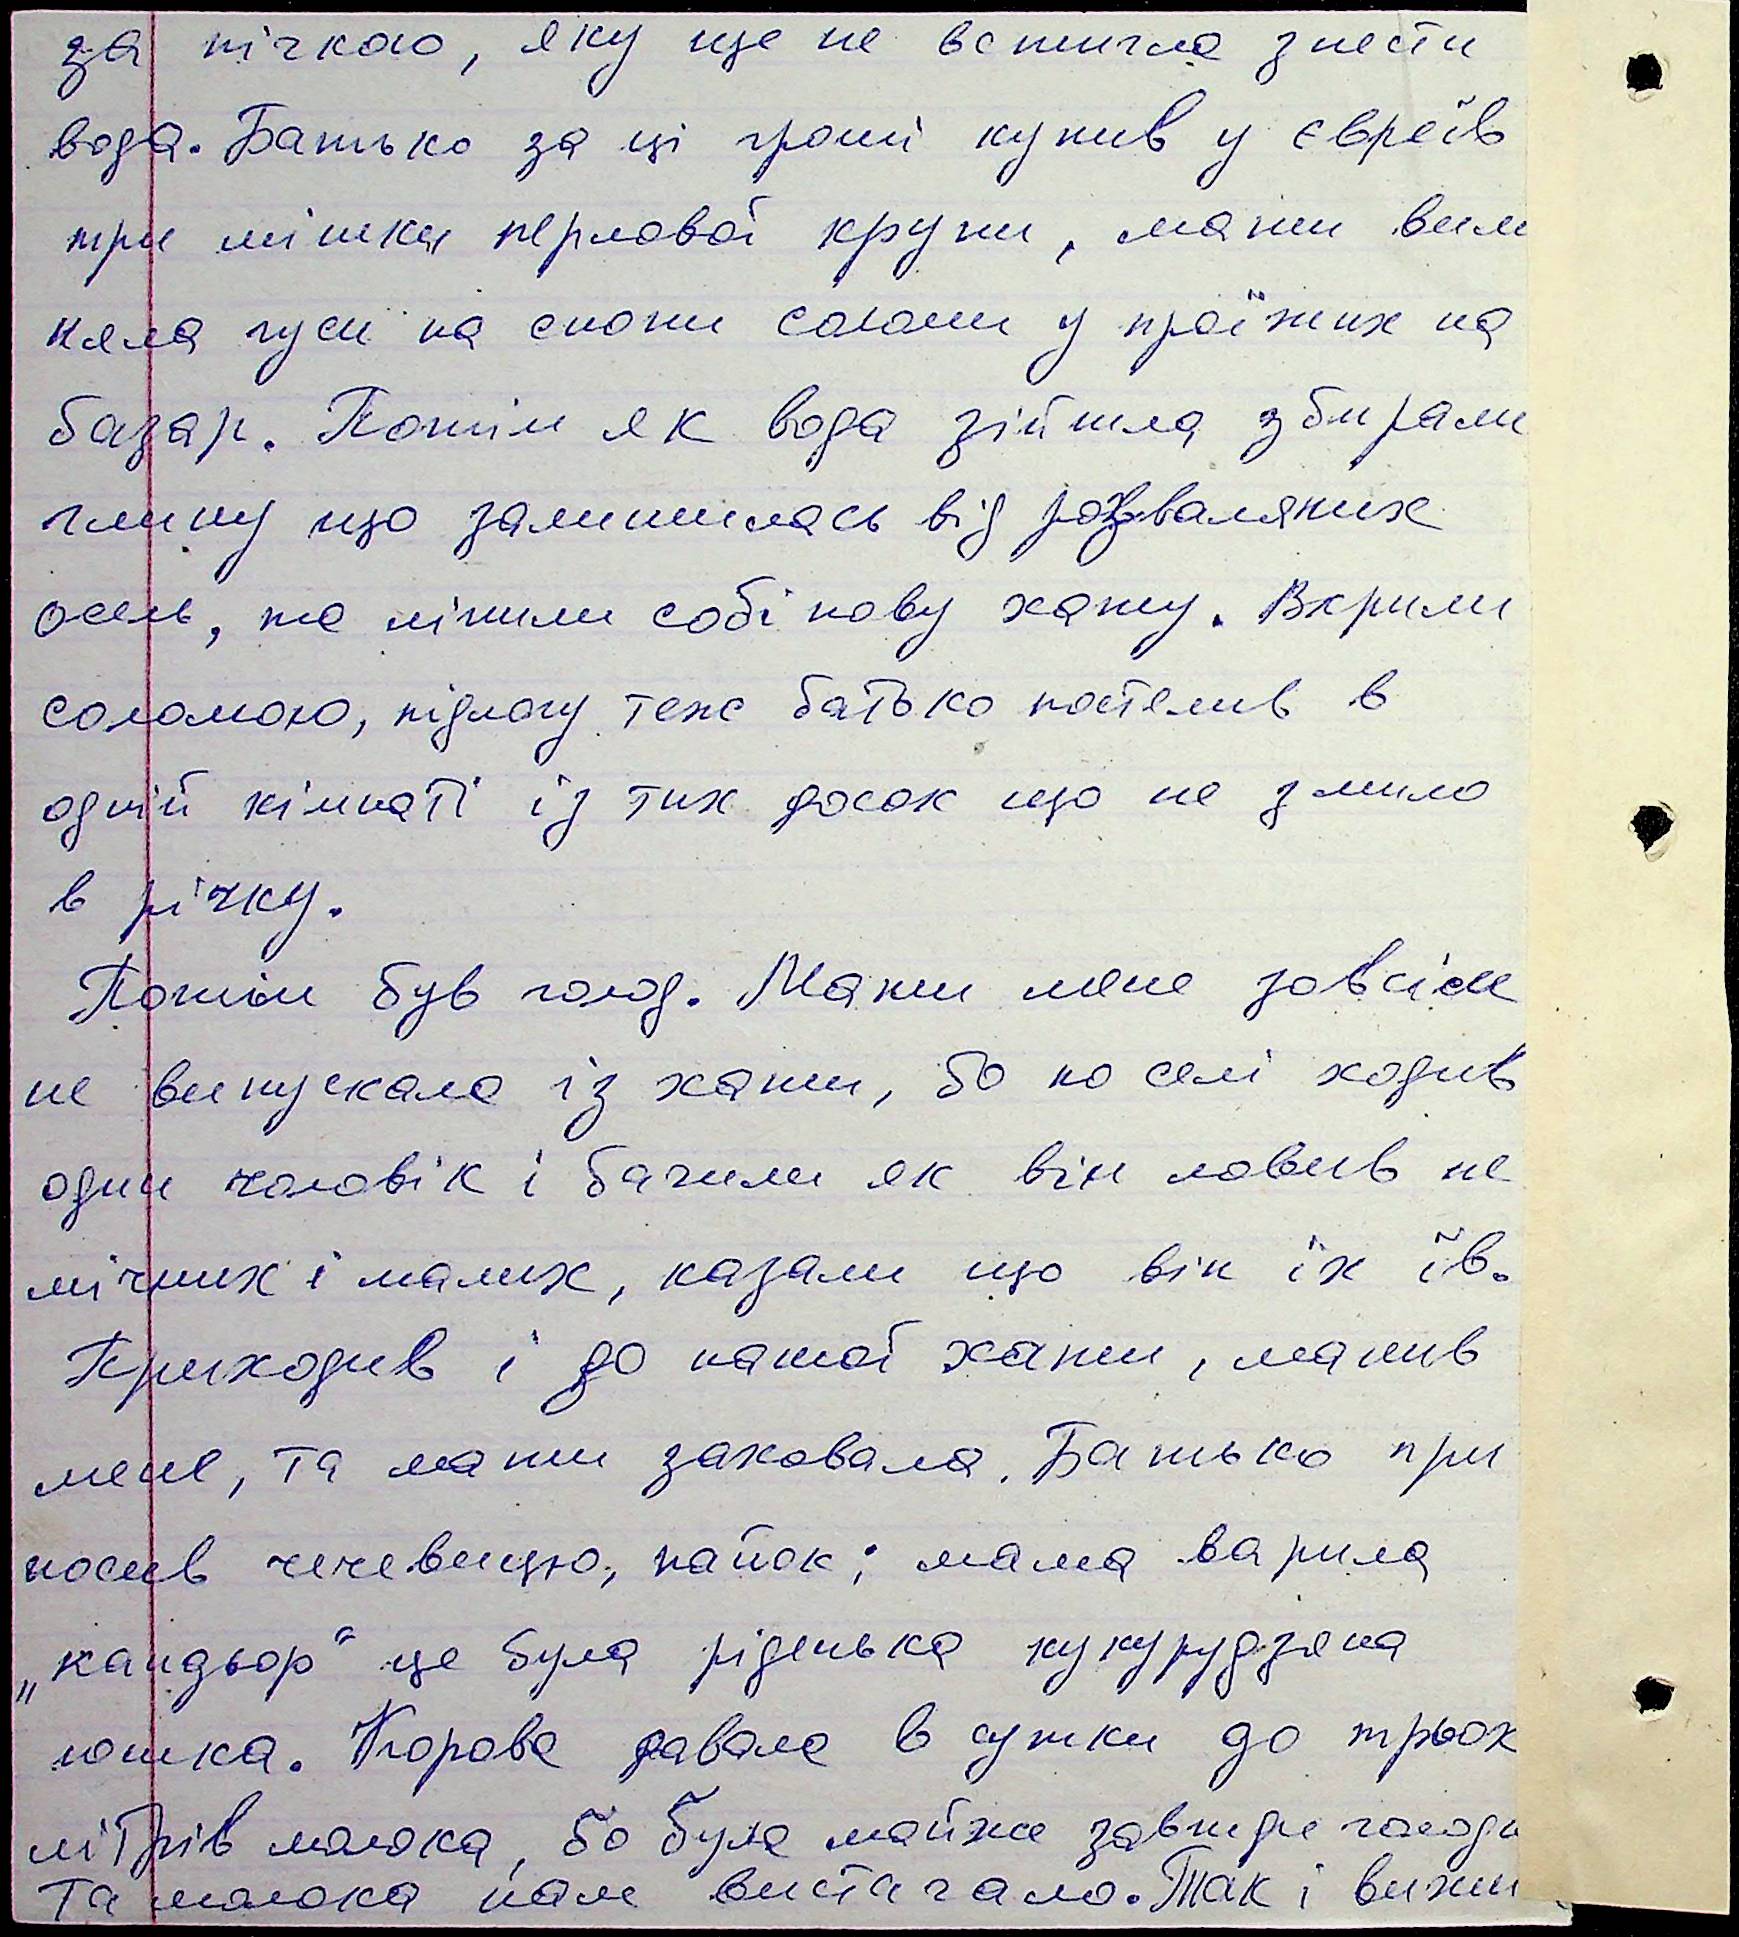 за пічкою, яку ще не встигла знести
вода. Батько за ці гроші купив у євреїв
три мішки перлової крупи, мати вимі
няла гуси на снопи соломи у проїжих на
базар. Потім як вода зійшла збирали
глину що залишилась від розваляних
осель, та ліпили собі нову хату. Вкрили
соломою, підлогу теж батько постелив в
одній кімнаті із тих досок що не змило
в річку.
Потім був голод. Мати мене зовсім
не випускала із хати, бо по селі ходив
один чоловік і бачили як він ловив не
мічних і малих, казали що він їх їв.
Приходив і до нашої хати, манив
мене, та мати заховала. Батько при
носив чечевицю, пайок; мама варила
„кандьор“ це була ріденька кукурудзяна
юшка. Корова давала в сутки до трьох
літрів молока, бо була майже завжди голодн
та молока нам вистачало. Так і вижи